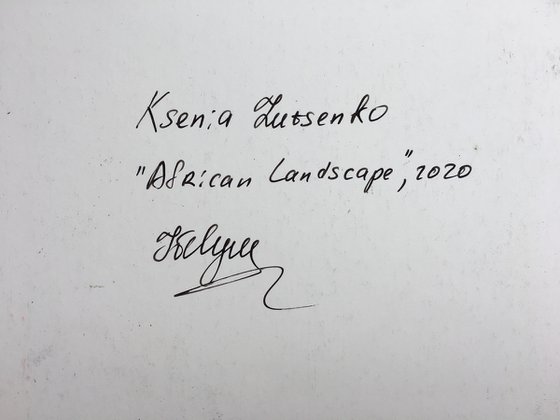 Ksenia Lutsenko
"African Landscape", 2020